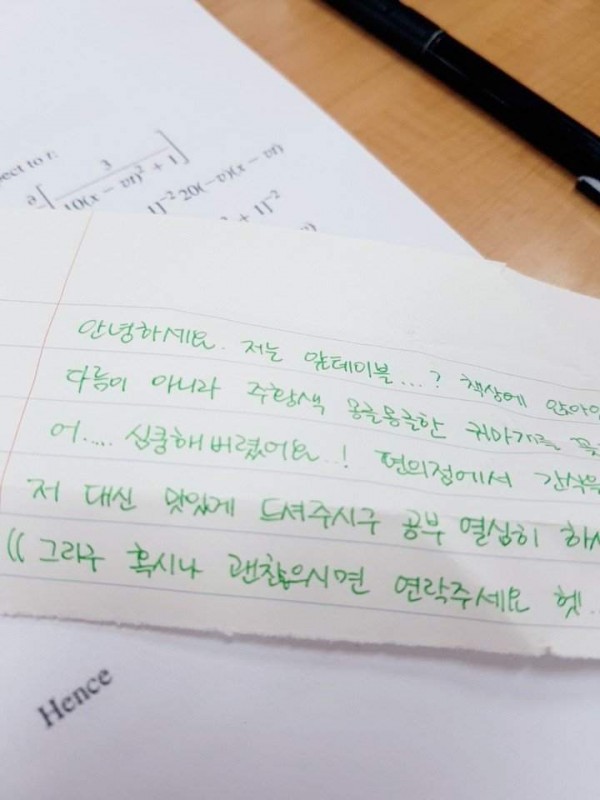 pect to t:
∂[3 / 10(x − vt)² + 1]
1]⁻² 20(−v)(x − vt)
+ 1]⁻²
안녕하세요. 저는 앞테이블...? 책상에 앉아있
다름이 아니라 주황색 몽글몽글한 귀마개를 꽂
어.... 심쿵해버렸어요..! 편의점에서 간식을
저 대신 맛있게 드셔주시구 공부 열심히 하시
(( 그리구 혹시나 괜찮으시면 연락주세요 헷..
Hence